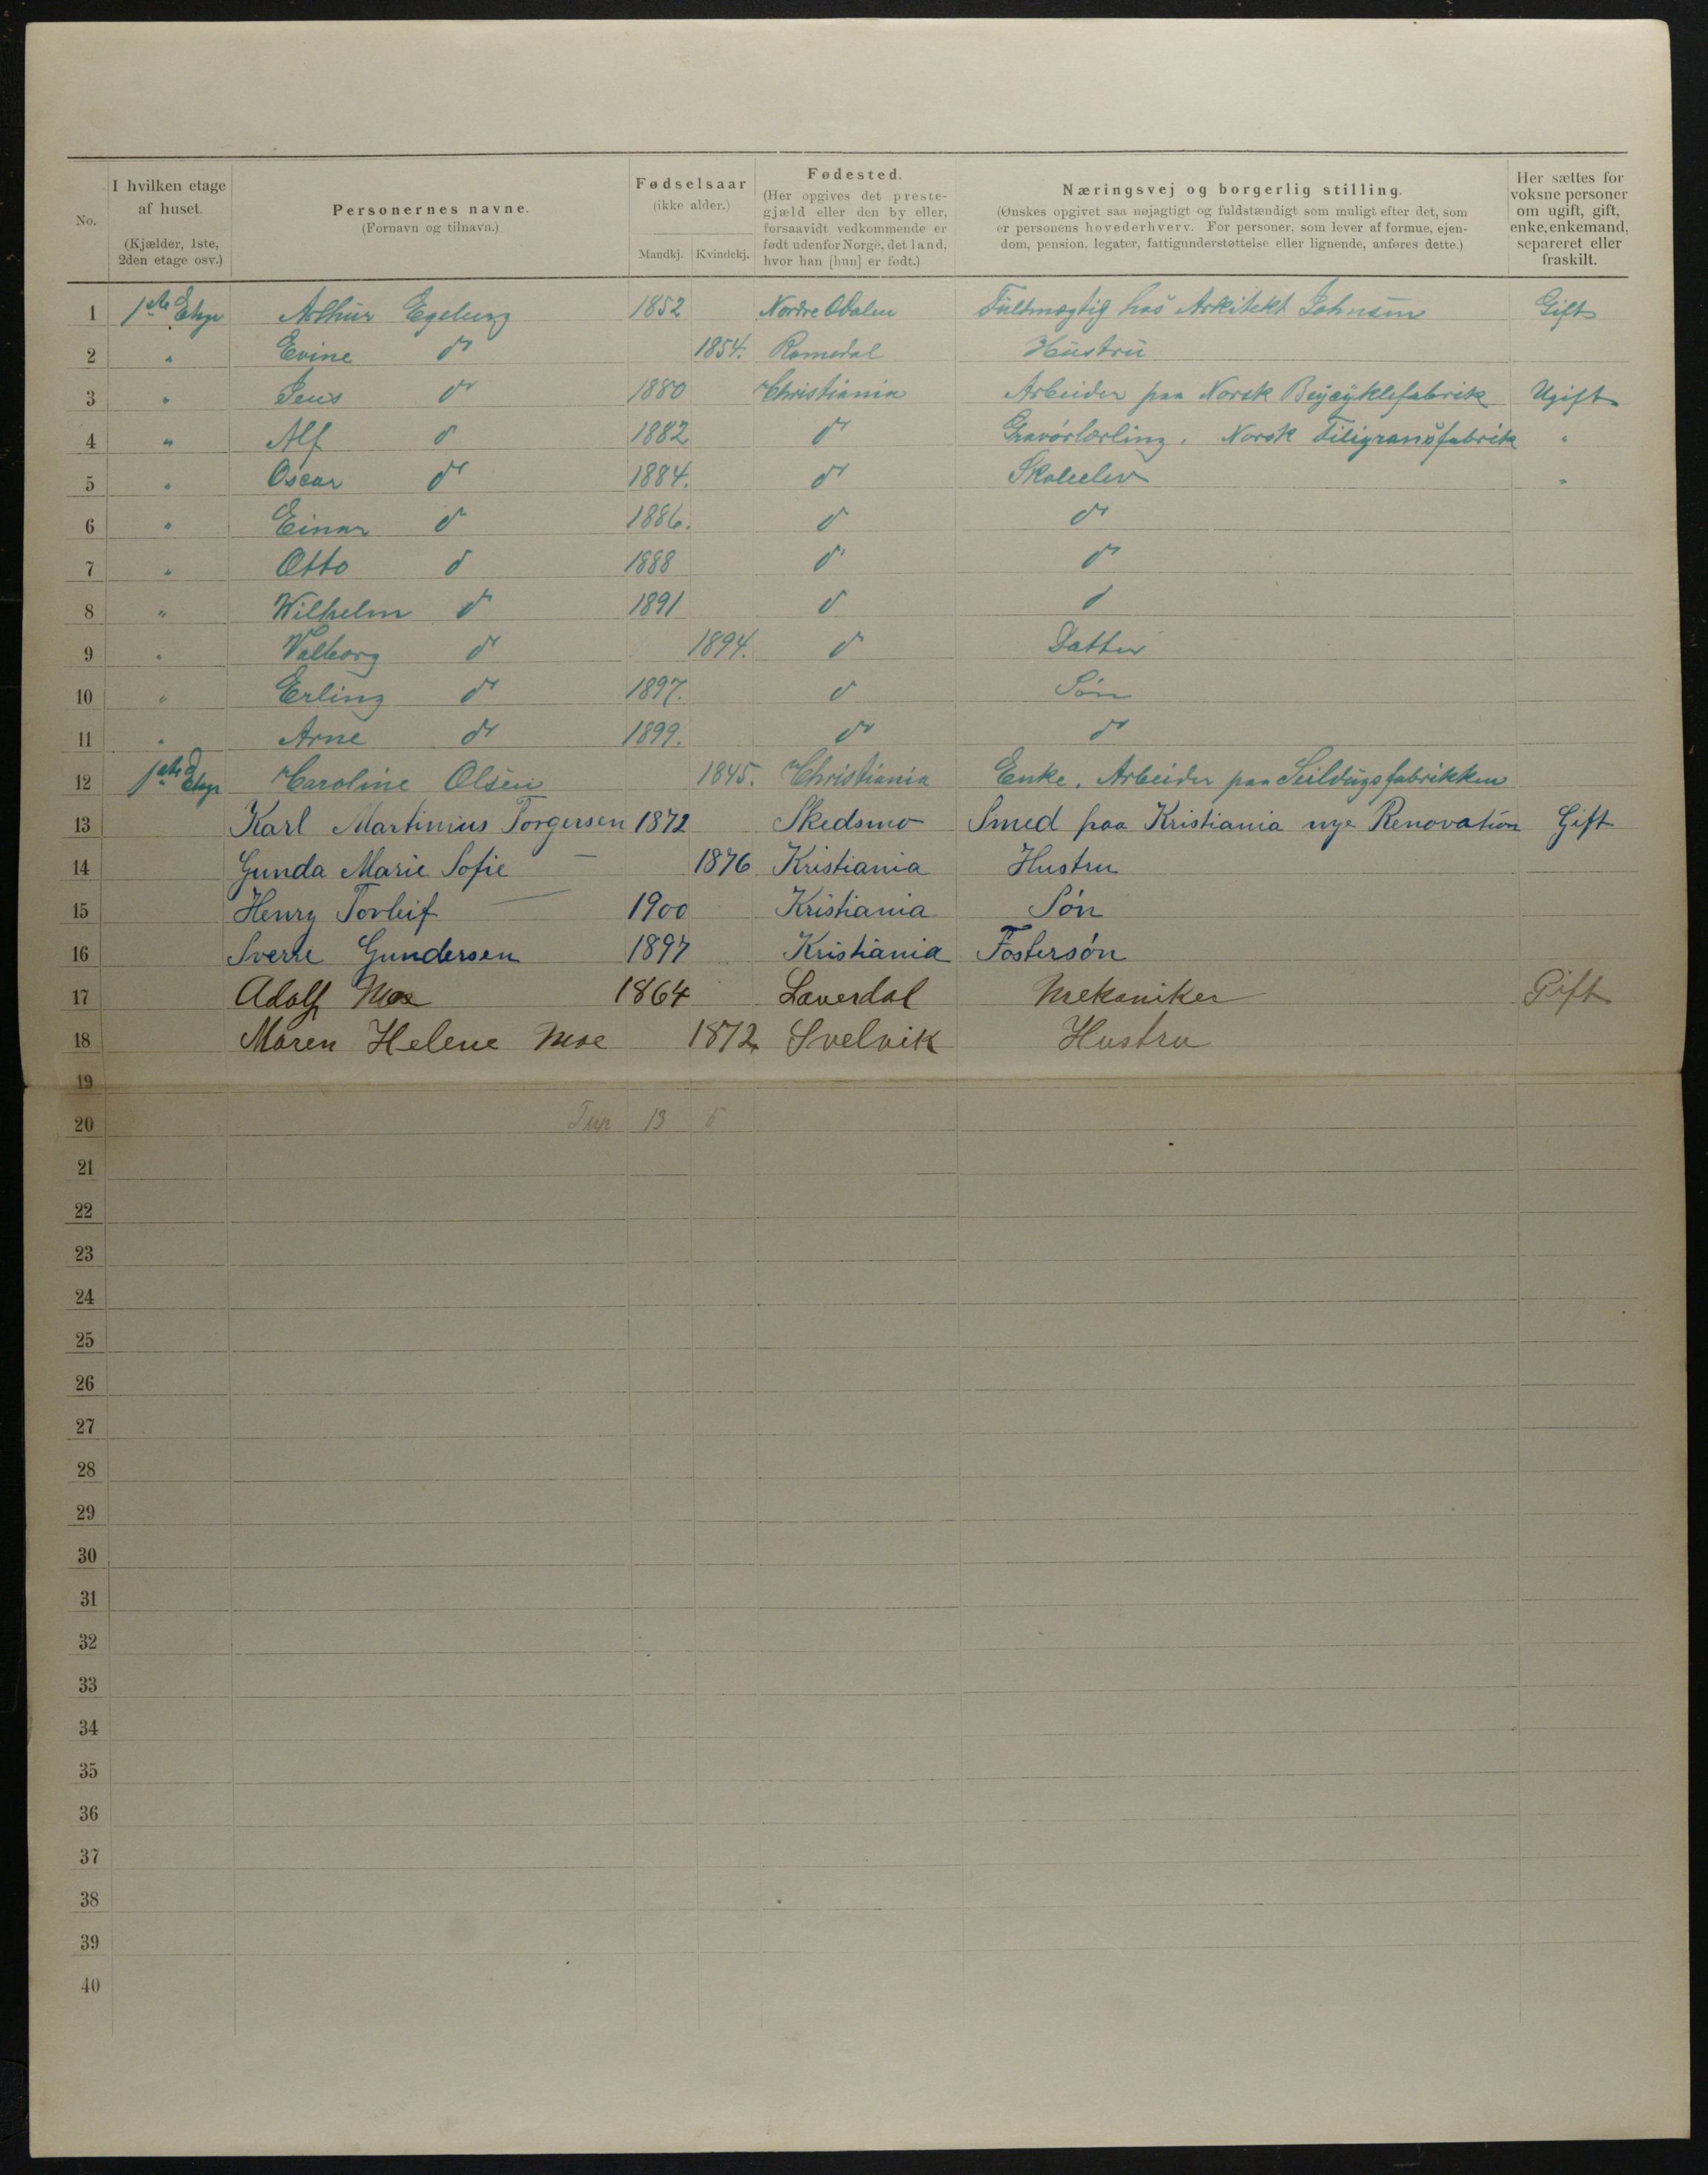 No.
I hvilken etage af huset. (Kjælder, 1ste, 2den etage osv.)
Personernes navne. (Fornavn og tilnavn.)
Fødselsaar (ikke alder.) Mandkj. Kvindekj.
Fødested. (Her opgives det prestegjæld eller den by eller, forsaavidt vedkommende er født udenfor Norge, det land, hvor han [hun] er født.)
Næringsvej og borgerlig stilling. (Ønskes opgivet saa nøjagtigt og fuldstændigt som muligt efter det, som er personens hovederhverv. For personer, som lever af formue, ejendom, pension, legater, fattigunderstøttelse eller lignende, anføres dette.)
Her sættes for voksne personer om ugift, gift, enke, enkemand, separeret eller fraskilt.
1 1ste Etage Arthur Egeberg 1852 Nordre Odalen Fuldmægtig hos Arkitekt Gift
2 " Evine do 1854. Romedal Hustru
3 " Jens do 1880 Christiania Arbeider paa Norsk Bycyklefabrik Ugift
4 " Alf do 1882 do Gravørlærling. Norsk Filigransfabrik "
5 " Oscar do 1884. do Skoleelev "
6 " Einar do 1886. do do
7 " Otto do 1888 do do
8 " Wilhelm do 1891 do do
9 " Valborg do 1894. do Datter
10 " Erling do 1897. do Søn
11 " Arne do 1899. do do
12 1ste Etage Caroline Olsen 1845. Christiania Enke. Arbeider paa Seildugsfabrikken
13 Karl Martinius Torgersen 1872 Skedsmo Smed paa Kristiania nye Renovation Gift
14 Gunda Marie Sofie — 1876 Kristiania Hustru
15 Henry Torleif — 1900 Kristiania Søn
16 Sverre Gundersen 1897 Kristiania Fostersøn
17 Adolf Moe 1864 Laverdal Mekaniker Gift
18 Maren Helene Moe 1872 Svelvik Hustru
19
20 13 5
21
22
23
24
25
26
27
28
29
30
31
32
33
34
35
36
37
38
39
40